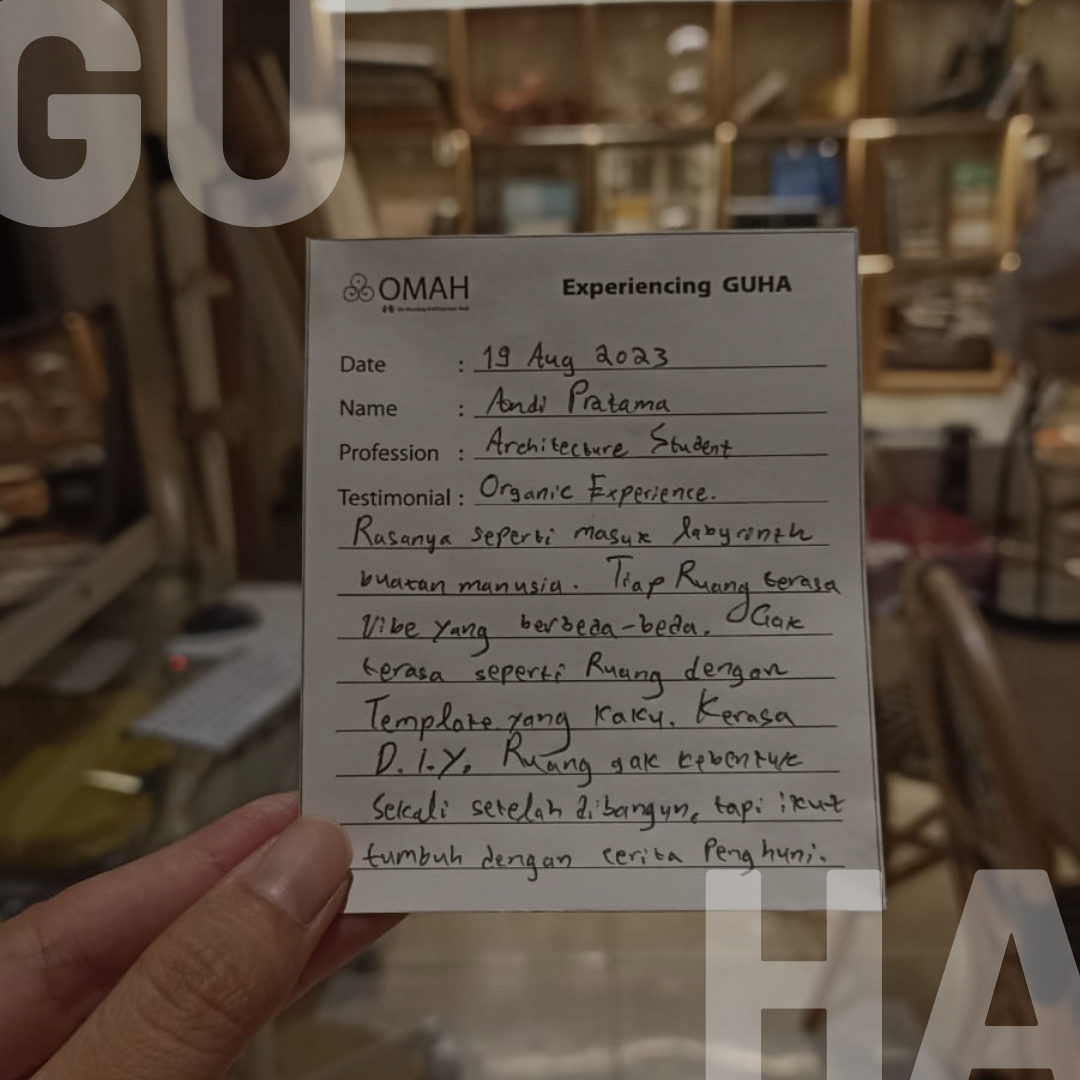 GU
OMAH
Experiencing GUHA
Date : 19 Aug 2023
Name : Andi Pratama
Profession : Architecture Student
Testimonial : Organic Experience.
Rasanya seperti masuk labyrinth
buatan manusia. Tiap Ruang terasa
Vibe yang berbeda-beda. Gak
terasa seperti Ruang dengan
Template yang kaku. Kerasa
D.I.Y. Ruang gak kebentuk
Sekali setelah dibangun, tapi ikut
tumbuh dengan cerita Penghuni.
HA